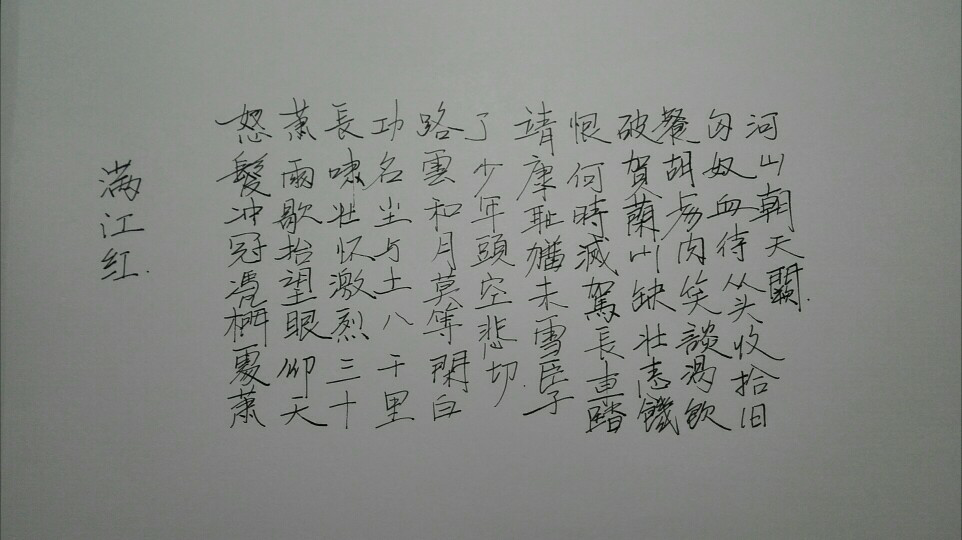 满江红.
怒髮冲冠凴欄處蕭
蕭雨歇抬望眼仰天
長啸壮怀激烈三十
功名尘与土八千里
路雲和月莫等閑白
了少年頭空悲切.
靖康耻猶未雪臣子
恨何時滅駕長車踏
破賀蘭山缺壮志饑
餐胡虏肉笑談渴飲
匈奴血待从头收拾旧
河山朝天闕.